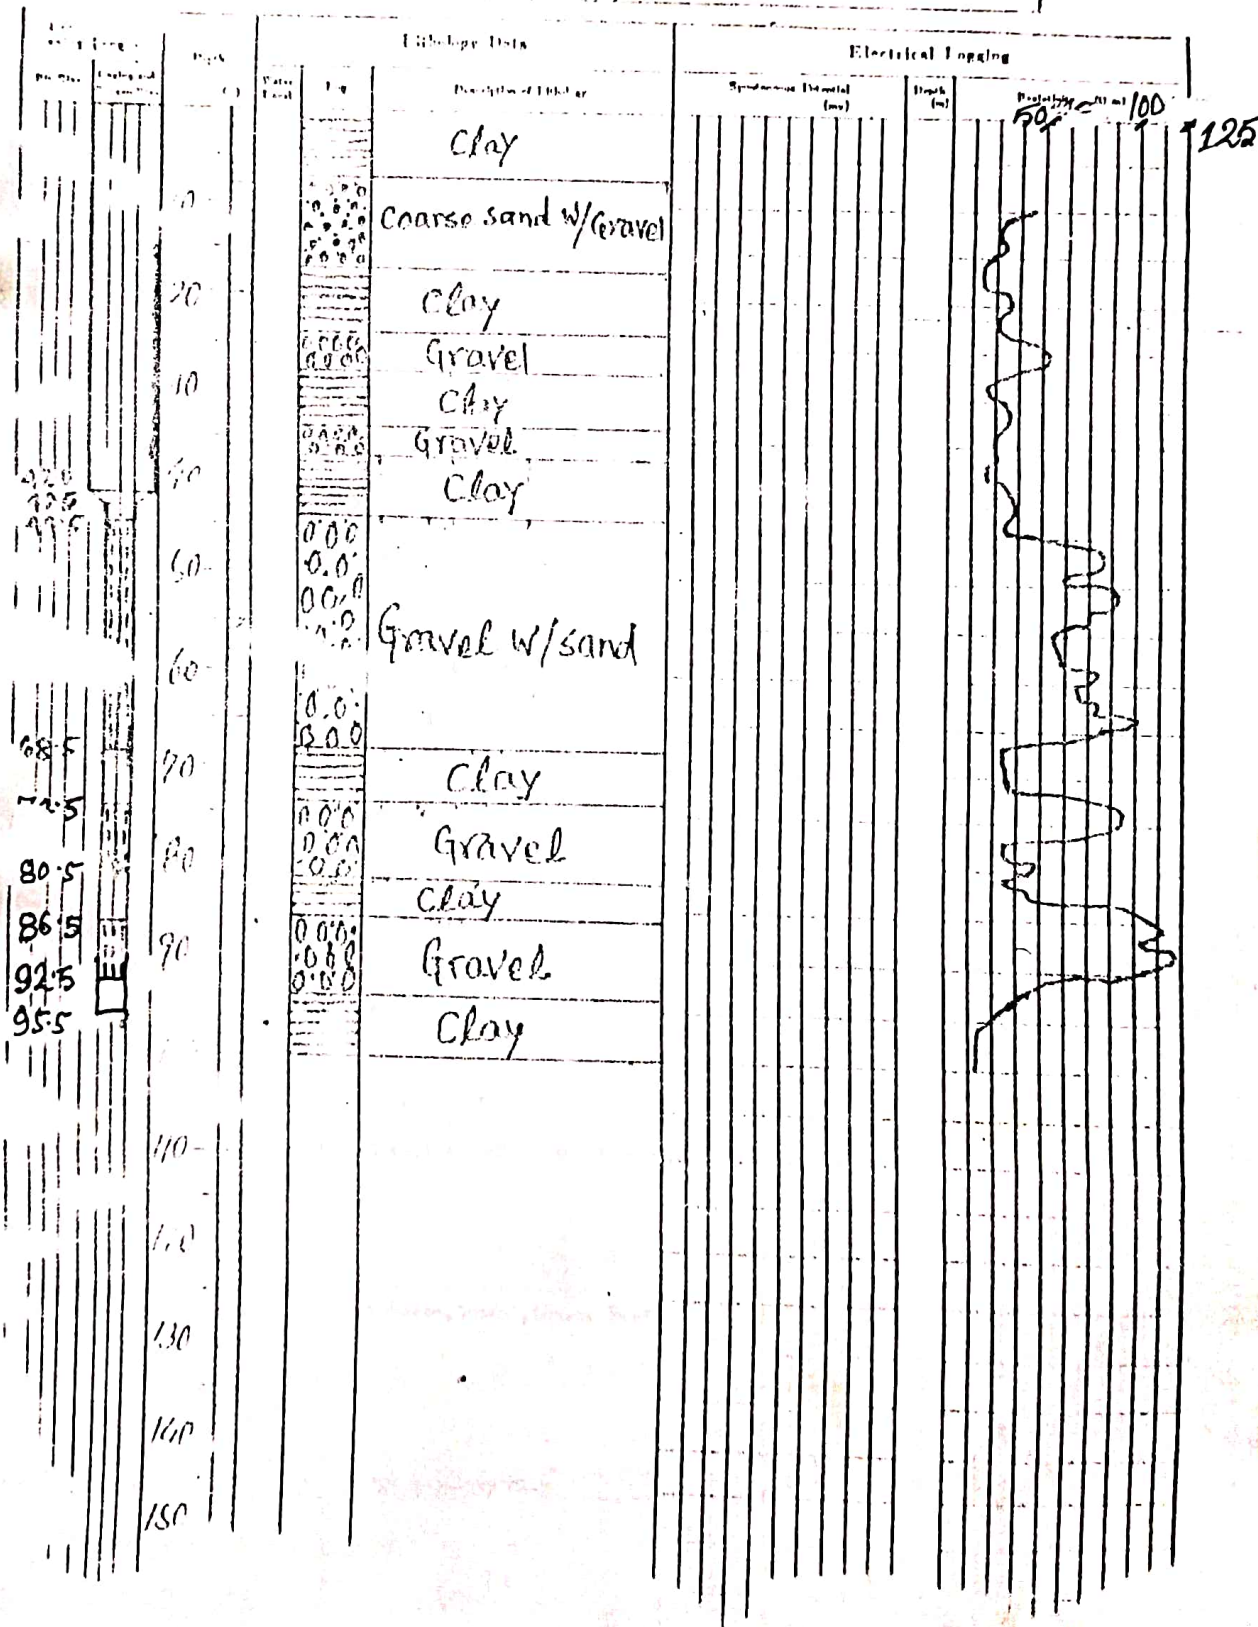 Lithology Data
Electrical Logging
Depth
Water Level
Log
Description of Lithology
Spontaneous Potential
(mv)
Depth
(m)
50
100
125
Clay
Coarse sand W/Gravel
20
Clay
Gravel
Clay
Gravel
40
Clay
50
Gravel W/sand
60
68.5
70
Clay
80
Gravel
80.5
Clay
86.5
90
Gravel
92.5
95.5
Clay
110
120
130
140
150